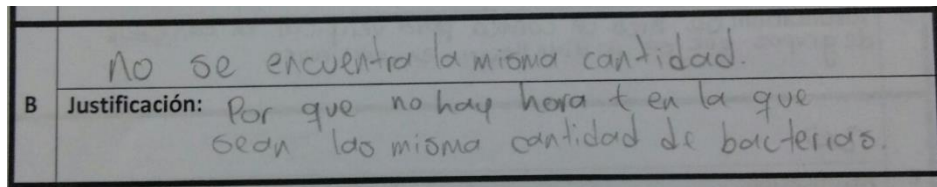 no se encuentra la misma cantidad.
B Justificación: Por que no hay hora t en la que
sean las misma cantidad de bacterias.